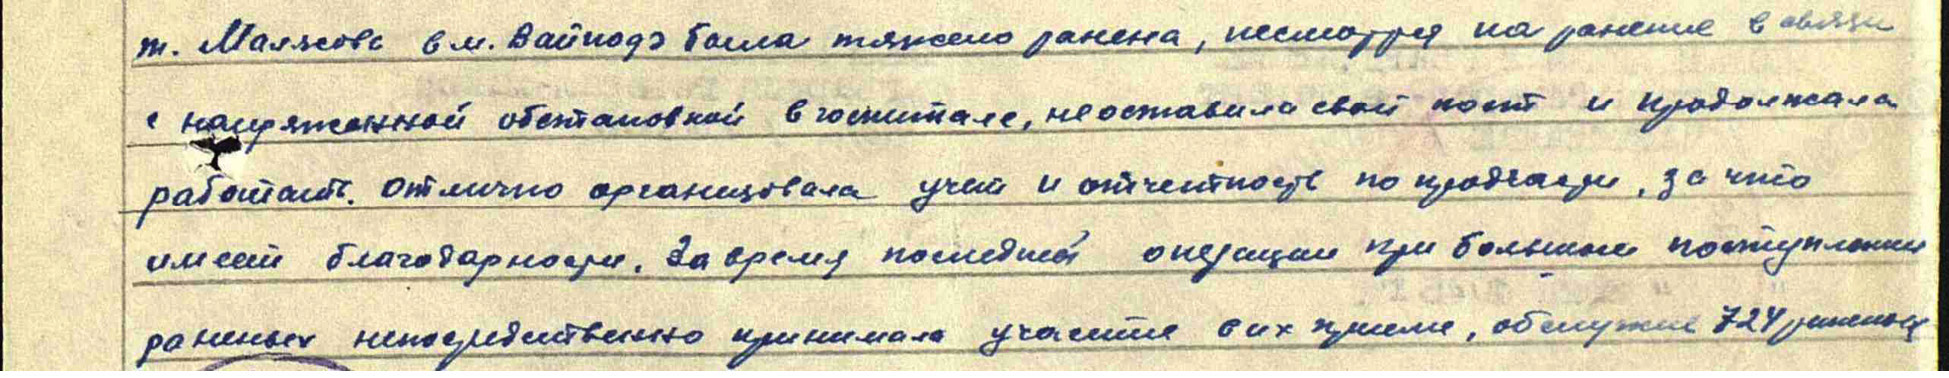 т. Малясова в м. Вайнодэ была тяжело ранена, несмотря на ранение в связи
с напряженной обстановкой в госпитале, не оставила свой пост и продолжала
работать. Отлично организовала учет и отчетность по продчасти, за что
имеет благодарности. За время последней операции при большом поступлении
раненых непосредственно принимала участие в их приеме, обслужив 724 раненых